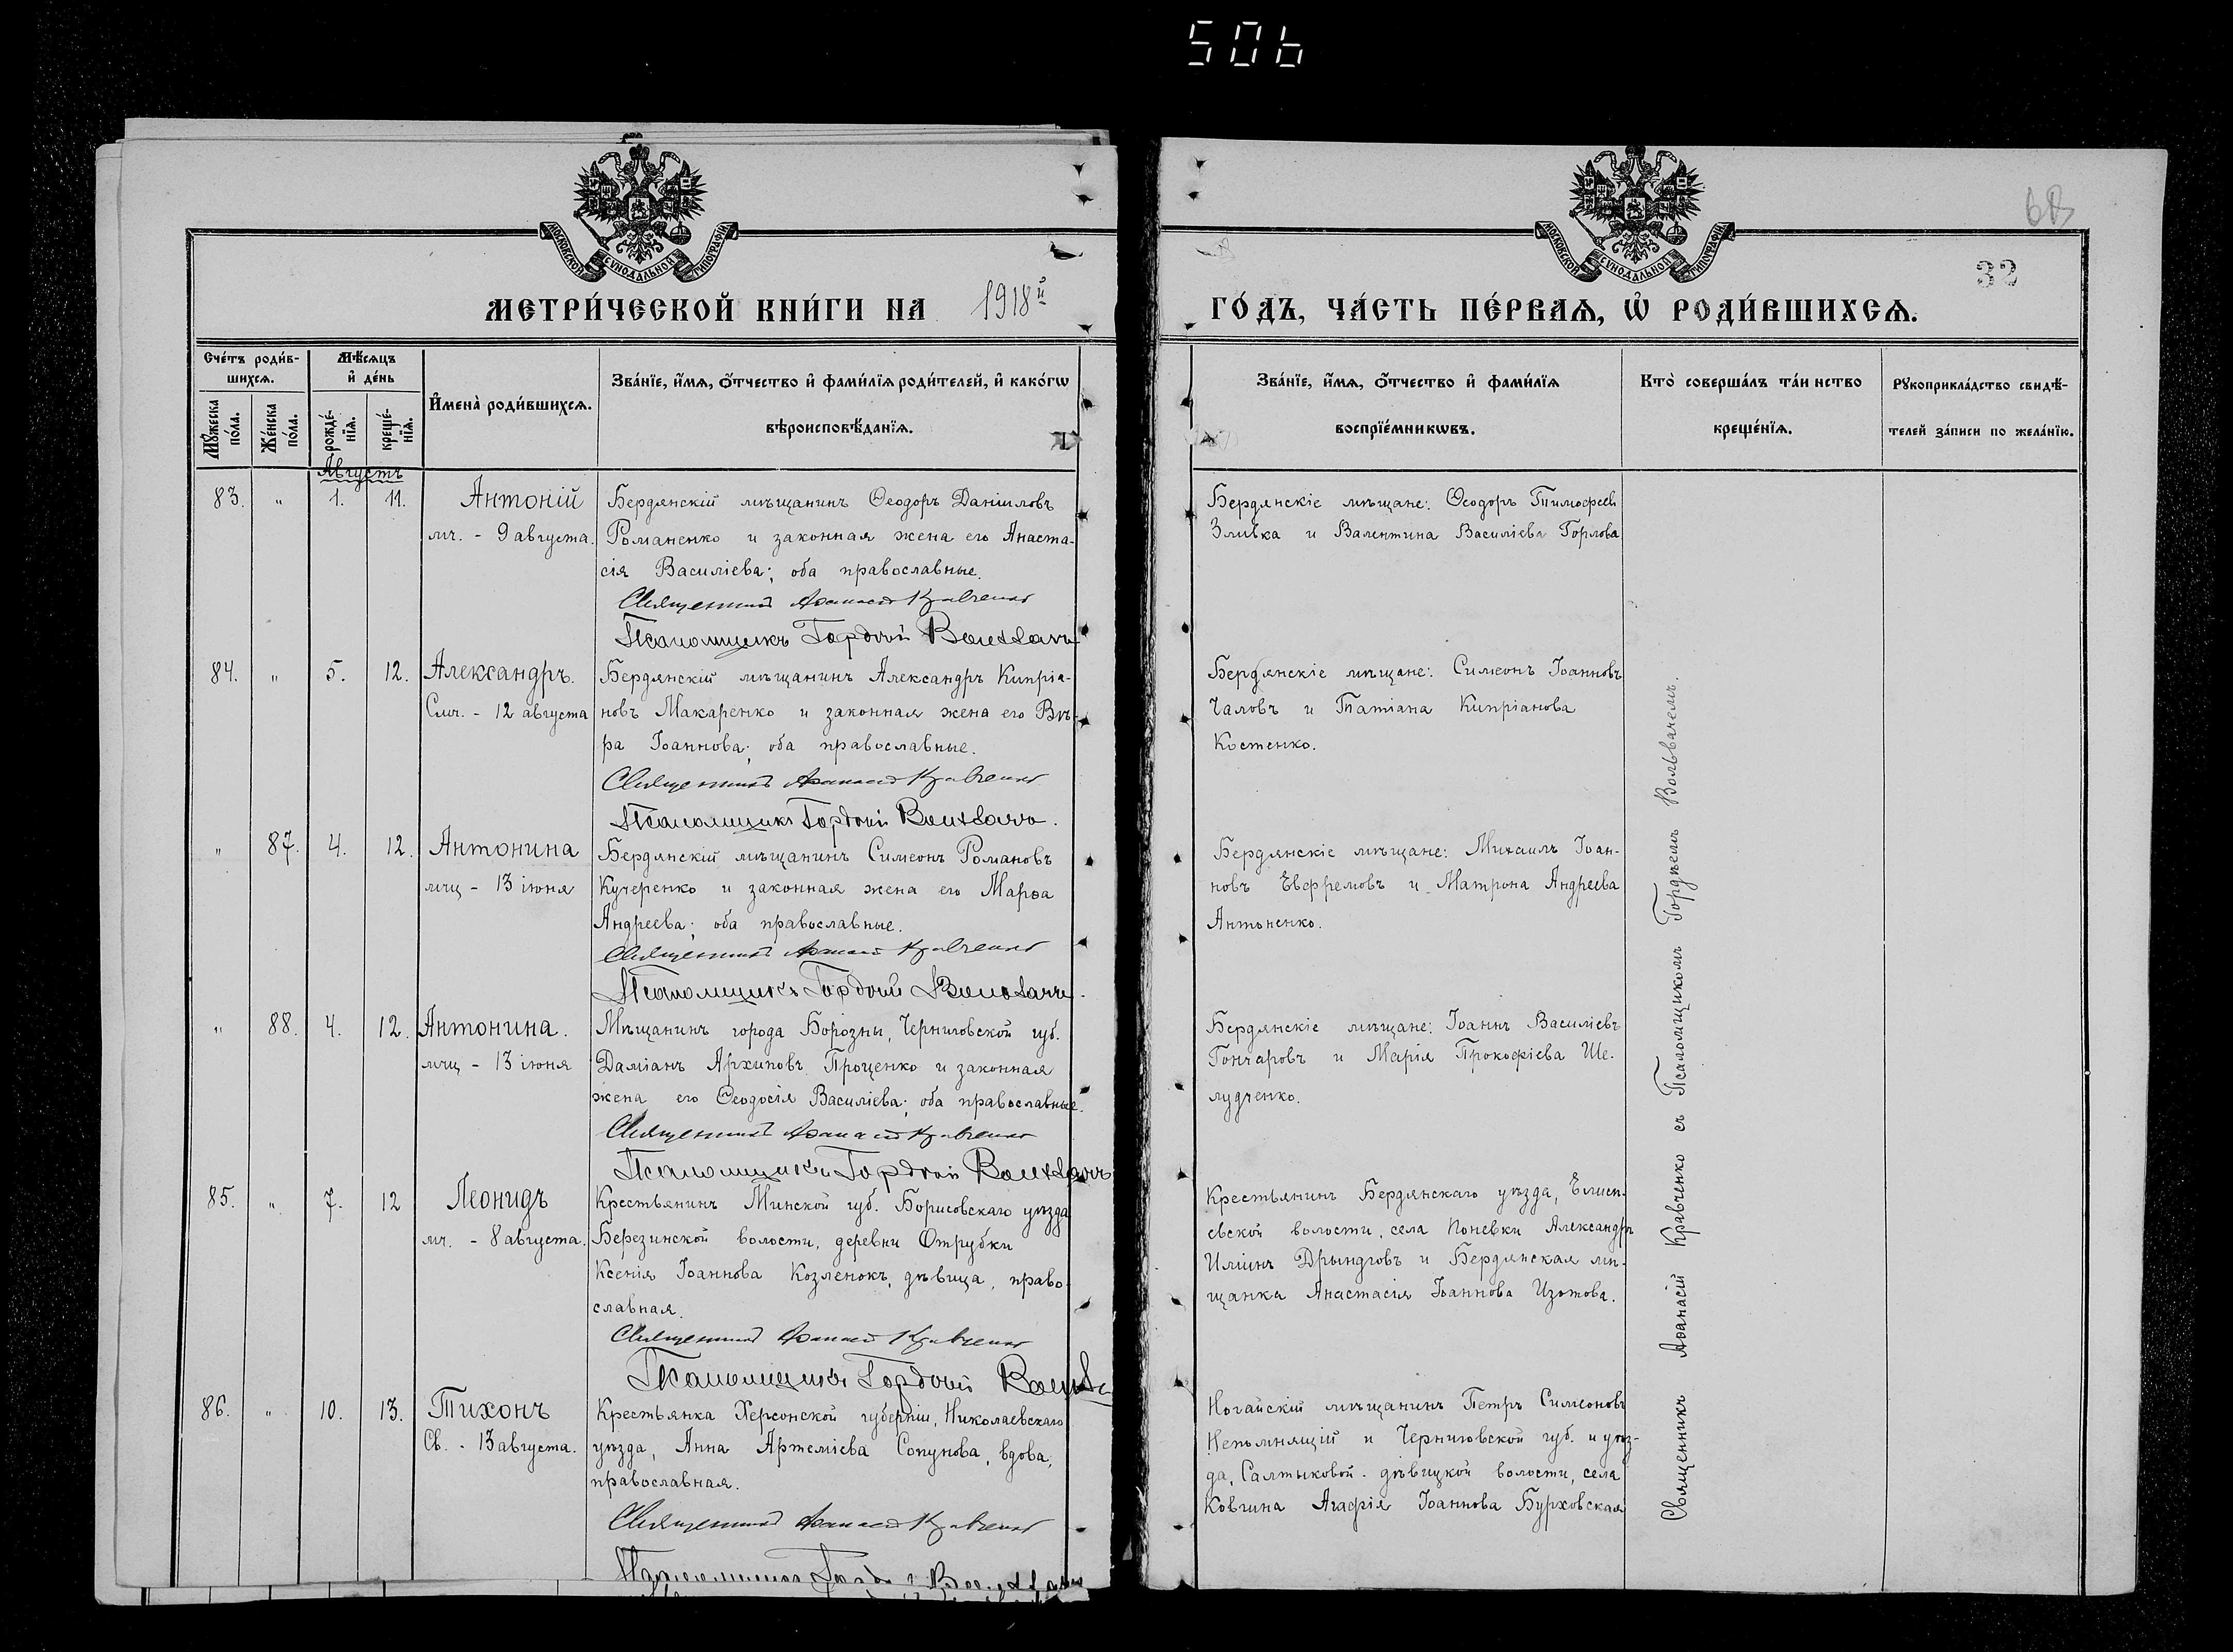 506
63
32
МОСКОВСКОЙ СѴНОДАЛЬНОЙ ТИПОГРАФІИ
МОСКОВСКОЙ СѴНОДАЛЬНОЙ ТИПОГРАФІИ
МЕТРИ́ЧЕСКОЙ КНИ́ГИ НА 1918й ГО́ДЪ, ЧА́СТЬ ПЕ́РВАѦ, Ѡ҆ РОДИ́ВШИХСѦ.
Сче́тъ роди́в-
шихсѧ.
Мꙋ́жеска по́ла.
Же́нска по́ла.
Мѣ́сѧцъ
и҆ де́нь
рожде́-
нїѧ.
креще́-
нїѧ.
И҆мена̀ роди́вшихсѧ.
Зва́нїе, и҆́мѧ, ѻ҆́тчество и҆ фами́лїѧ роди́телей, и҆ како́гѡ
вѣроисповѣ́данїѧ.
Зва́нїе, и҆́мѧ, ѻ҆́тчество и҆ фами́лїѧ
воспрїе́мникѡвъ.
Кто̀ соверша́лъ та́инство
креще́нїѧ.
Рꙋкоприкла́дство свидѣ́-
телей за́писи по жела́нїю.
Августъ
83. " 1. 11. Антоній
мч. - 9 августа.
Бердянскій мѣщанинъ Ѳеодоръ Даніиловъ
Романенко и законная жена его Анаста-
сія Василіева; оба православные.
Священникъ Аѳанасій Кравченко
Псаломщикъ Гордій Вольвачъ
Бердянскіе мѣщане: Ѳеодоръ Тимоѳеевъ
Зливка и Валентина Василіева Горлова
84. " 5. 12. Александръ.
Смч. - 12 августа
Бердянскій мѣщанинъ Александръ Кипріа-
новъ Макаренко и законная жена его Вѣ-
ра Іоаннова; оба православные.
Священникъ Аѳанасій Кравченко
Псаломщикъ Гордій Вольвачъ.
Бердянскіе мѣщане: Симеонъ Іоанновъ
Чаловъ и Татіана Кипріанова
Костенко.
" 87. 4. 12. Антонина
мчц - 13 іюня
Бердянскій мѣщанинъ Симеонъ Романовъ
Кучеренко и законная жена его Марѳа
Андреева; оба православные.
Священникъ Аѳанасій Кравченко
Псаломщикъ Гордій Вольвачъ.
Бердянскіе мѣщане: Михаилъ Іоан-
новъ Евфремовъ и Матрона Андреева
Антоненко.
" 88. 4. 12. Антонина.
мчц - 13 іюня
Мѣщанинъ города Борозны, Черниговской губ.
Даміанъ Архиповъ Проценко и законная
жена его Ѳеодосія Василіева; оба православные.
Священникъ Аѳанасій Кравченко
Псаломщикъ Гордій Вольвачъ
Бердянскіе мѣщане: Іоаннъ Василіевъ
Гончаровъ и Марія Прокофіева Ше-
лудченко.
85. " 7. 12 Леонидъ
мч. - 8 августа.
Крестьянинъ Минской губ. Борисовскаго уѣзда
Березинской волости, деревни Отрубки
Ксенія Іоаннова Козленокъ, дѣвица, право-
славная.
Священникъ Аѳанасій Кравченко
Псаломщикъ Гордій
Крестьянинъ Бердянскаго уѣзда, Елисе-
евской волости, села Поневки Александръ
Иліинъ Дрындговъ и Бердянская мѣ-
щанка Анастасія Іоаннова Изотова.
86. " 10. 13. Тихонъ
Св. - 13 августа.
Крестьянка Херсонской губерніи, Николаевскаго
уѣзда, Анна Артеміева Сопунова, вдова,
православная.
Священникъ Аѳанасій Кравченко
Псаломщикъ Гордій Вольвачъ
Ногайскій мѣщанинъ Петръ Симеоновъ
Непомнящій и Черниговской губ. и уѣз-
да, Салтыковой-дѣвицкой волости, села
Ковчина Агафія Іоаннова Бурховская
Священникъ Аѳанасій Кравченко съ Псаломщикомъ Гордѣемъ Вольвачемъ.